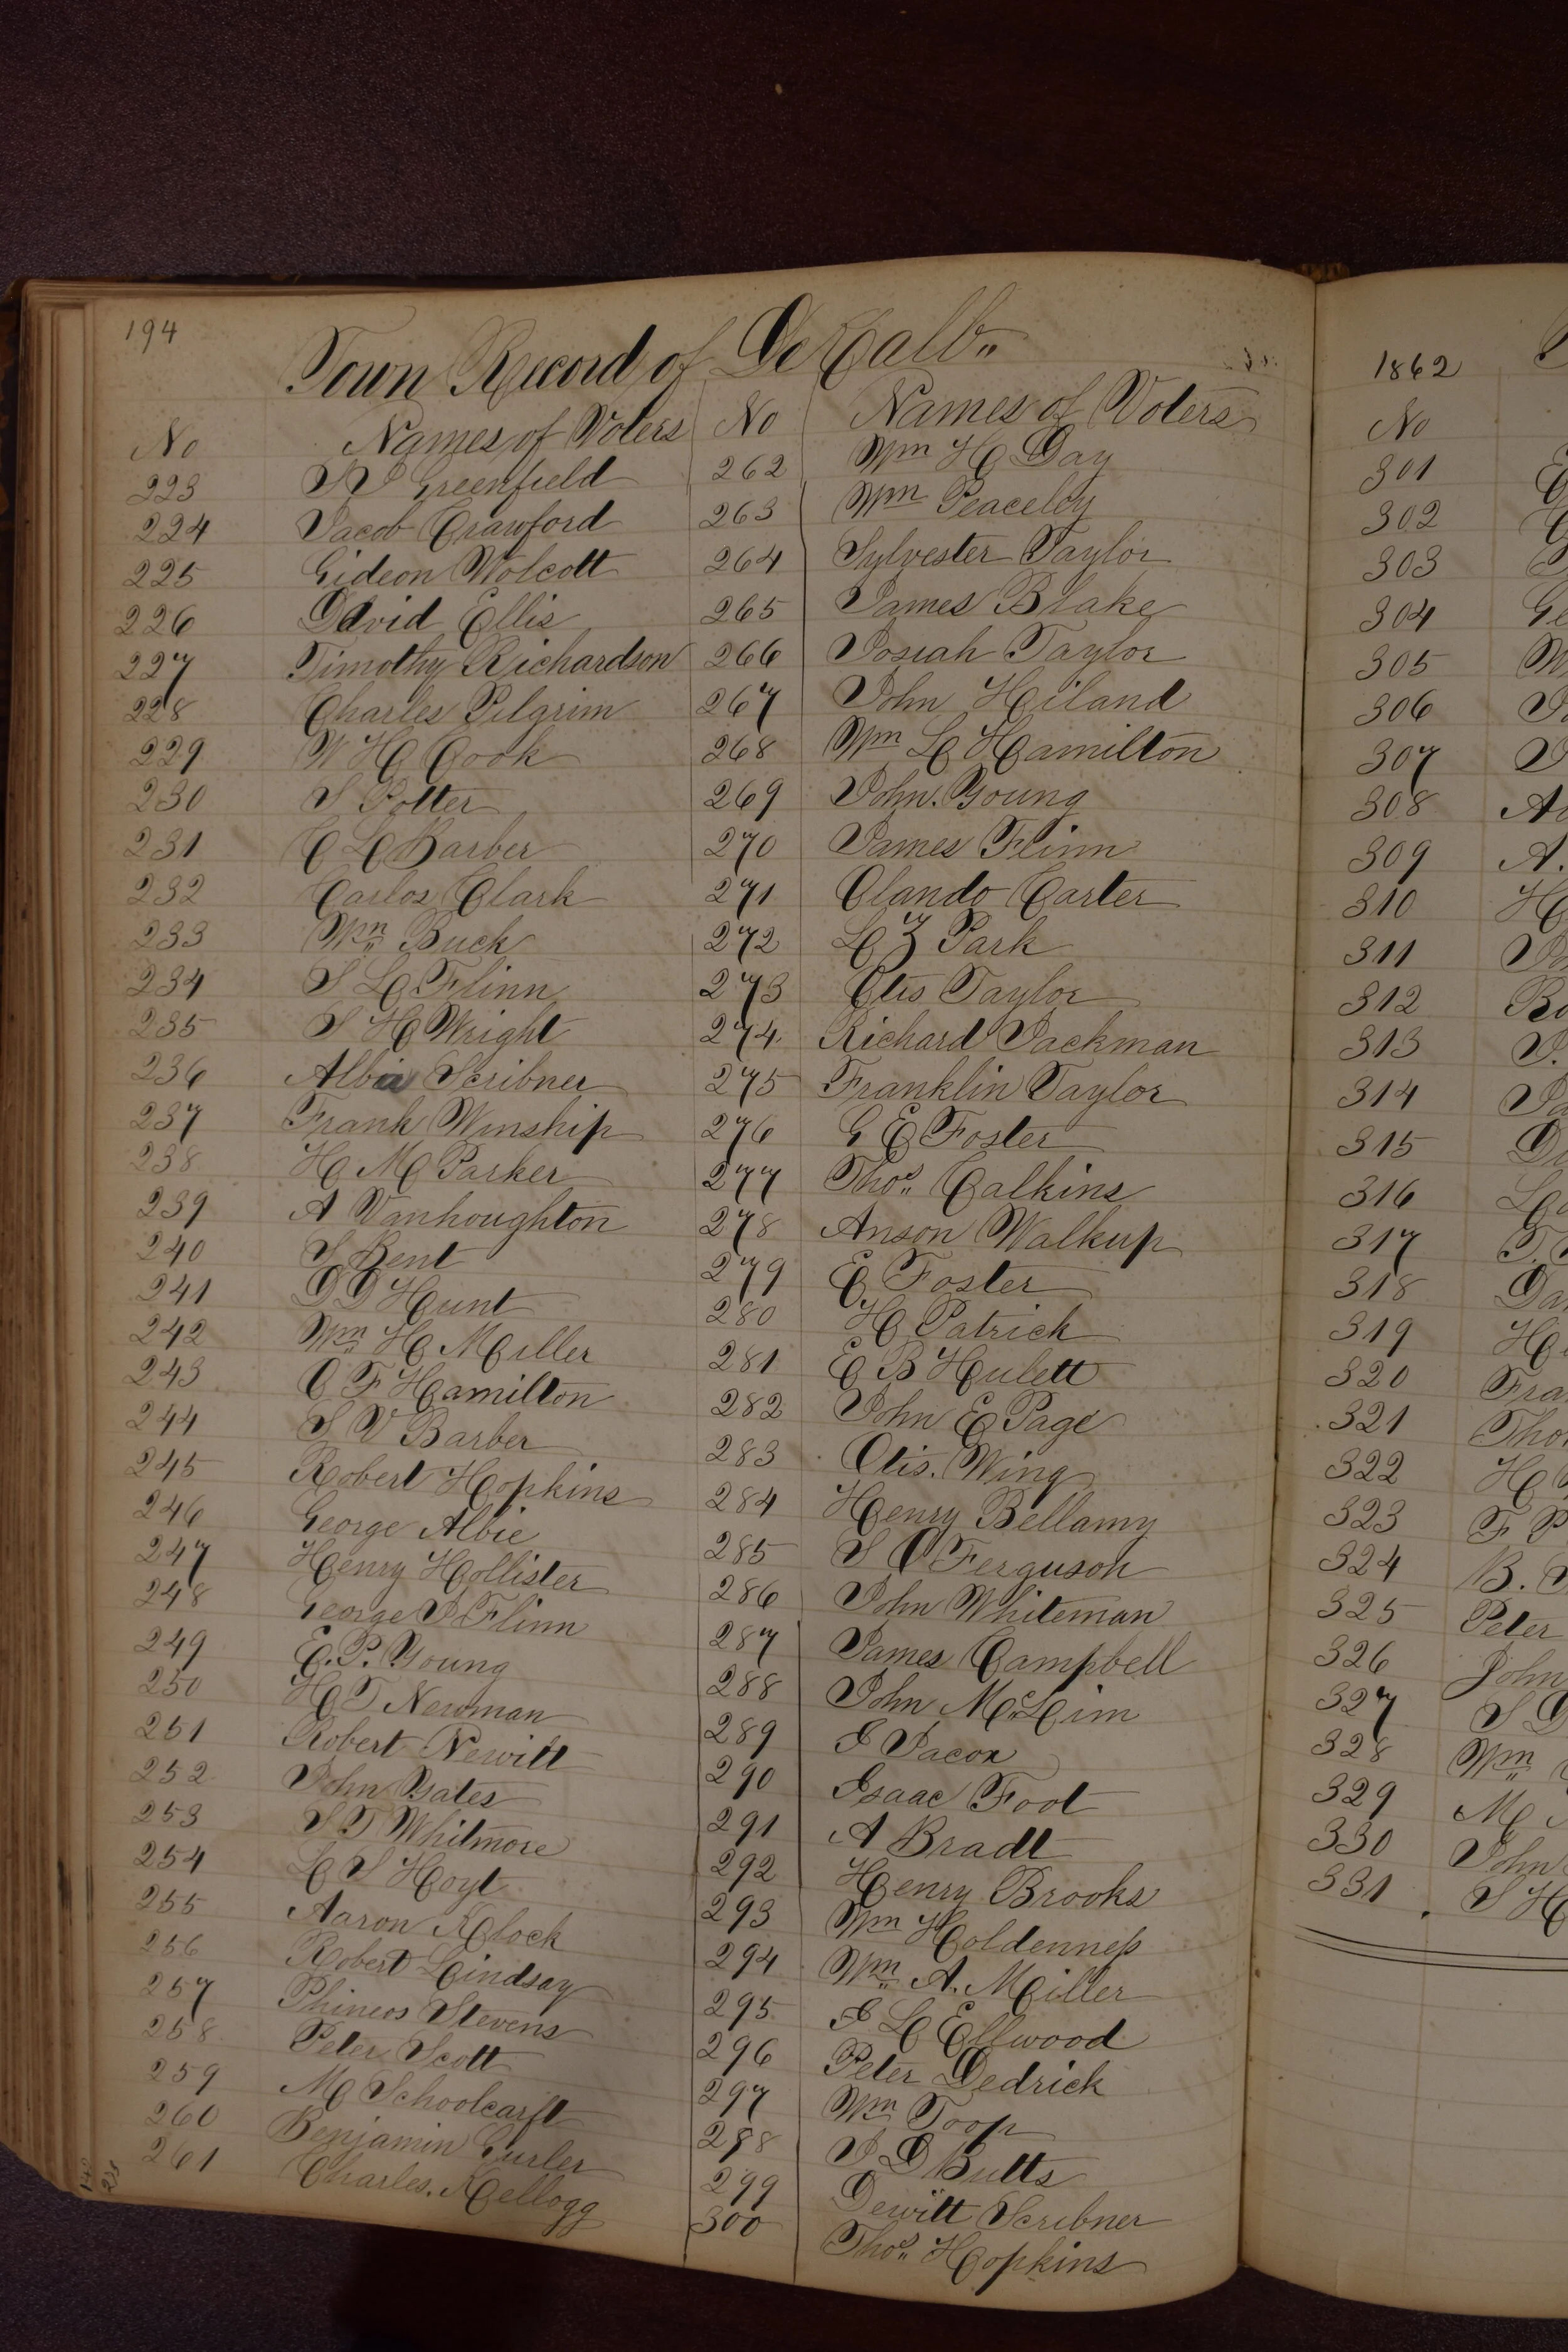 194
Town Record of De Kalb
No Names of Voters No Names of Voters
223 Greenfield 262 Wm H Day
224 Jacob Crawford 263 Wm Peaceley
225 Gideon Wolcott 264 Sylvester Taylor
226 David Ellis 265 James Blake
227 Timothy Richardson 266 Josiah Taylor
228 Charles Pilgrim 267 John Hiland
229 W H Cook 268 Wm L Hamilton
230 S Potter 269 John. Young
231 C L Barber 270 James Flinn
232 Carlos Clark 271 Olando Carter
233 Wm Buck 272 L Z Park
234 S L Flinn 273 Otis Taylor
235 S H Wright 274 Richard Jackman
236 Scribner 275 Franklin Taylor
237 Frank Winship 276 G E Foster
238 H M Parker 277 Thos Calkins
239 A Vanhoughton 278 Anson Walkup
240 S Bent 279 E Foster
241 D D Hunt 280 H Patrick
242 Wm H Miller 281 E B Hulett
243 O F Hamilton 282 John E Page
244 S V Barber 283 Otis. Wing
245 Robert Hopkins 284 Henry Bellamy
246 George Albie 285 S O Ferguson
247 Henry Hollister 286 John Whiteman
248 George J Flinn 287 James Campbell
249 E. P. Young 288 John McLim
250 H T Newman 289 I Jacox
251 Robert Newitt 290 Isaac Foot
252 John Yates 291 A Bradt
253 S T Whitmore 292 Henry Brooks
254 L S Hoyt 293 Wm Holdenness
255 Aaron Klock 294 Wm A. Miller
256 Robert Lindsay 295 I L Ellwood
257 Phineos Stevens 296 Peter Dedrick
258 Peter Scott 297 Wm Toop
259 M Schoolcarft 298 J D Butts
260 Benjamin Gurler 299 Dewitt Scribner
261 Charles. Kellogg 300 Thos Hopkins
1862
No
301
302
303
304 Ge
305
306
307
308
309 A.
310 H
311
312
313
314
315
316
317
318 Da
319 H
320 Fra
321 Tho
322 H
323 F P
324 B.
325 Peter
326 John
327 S D
328 Wm
329 M
330 John
331 S H